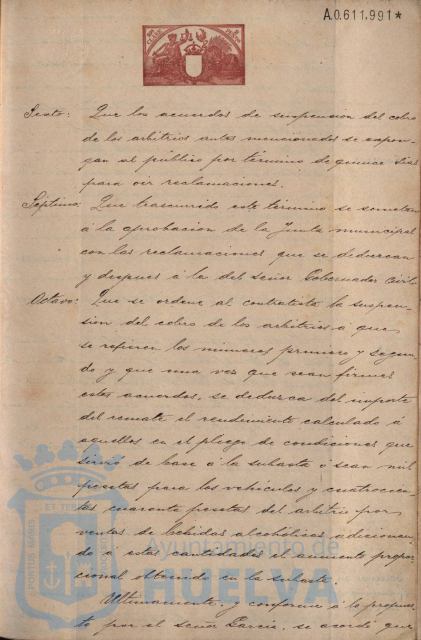 A.0.611.991*
Sexto: Que los acuerdos de suspension del cobro
de los arbitrios antes mencionados se expon-
gan al público por término de quince dias
para oir reclamaciones.
Septimo: Que trascurrido este término se sometan
á la aprobacion de la Junta municipal
con las reclamaciones que se deduzcan
y despues á la del señor Gobernador Civil.
Octavo: Que se ordene al contratista la suspen-
sion del cobro de los arbitrios á que
se refieren los números primero y segun-
do y que una vez que sean firmes
estos acuerdos, se deduzca del importe
del remate el rendimiento calculado á
aquellos en el pliego de condiciones que
sirvió de base á la subasta ó sean mil
pesetas para los vehículos y cuatrocien-
tas cuarenta pesetas del arbitrio por
ventas de bebidas alcohólicas adicionan-
do á estas cantidades el aumento propor-
cional obtenido en la subasta.
Ultimamente, y conforme á lo propues-
to por el señor García, se acordó que
Ayuntamiento de
HUELVA